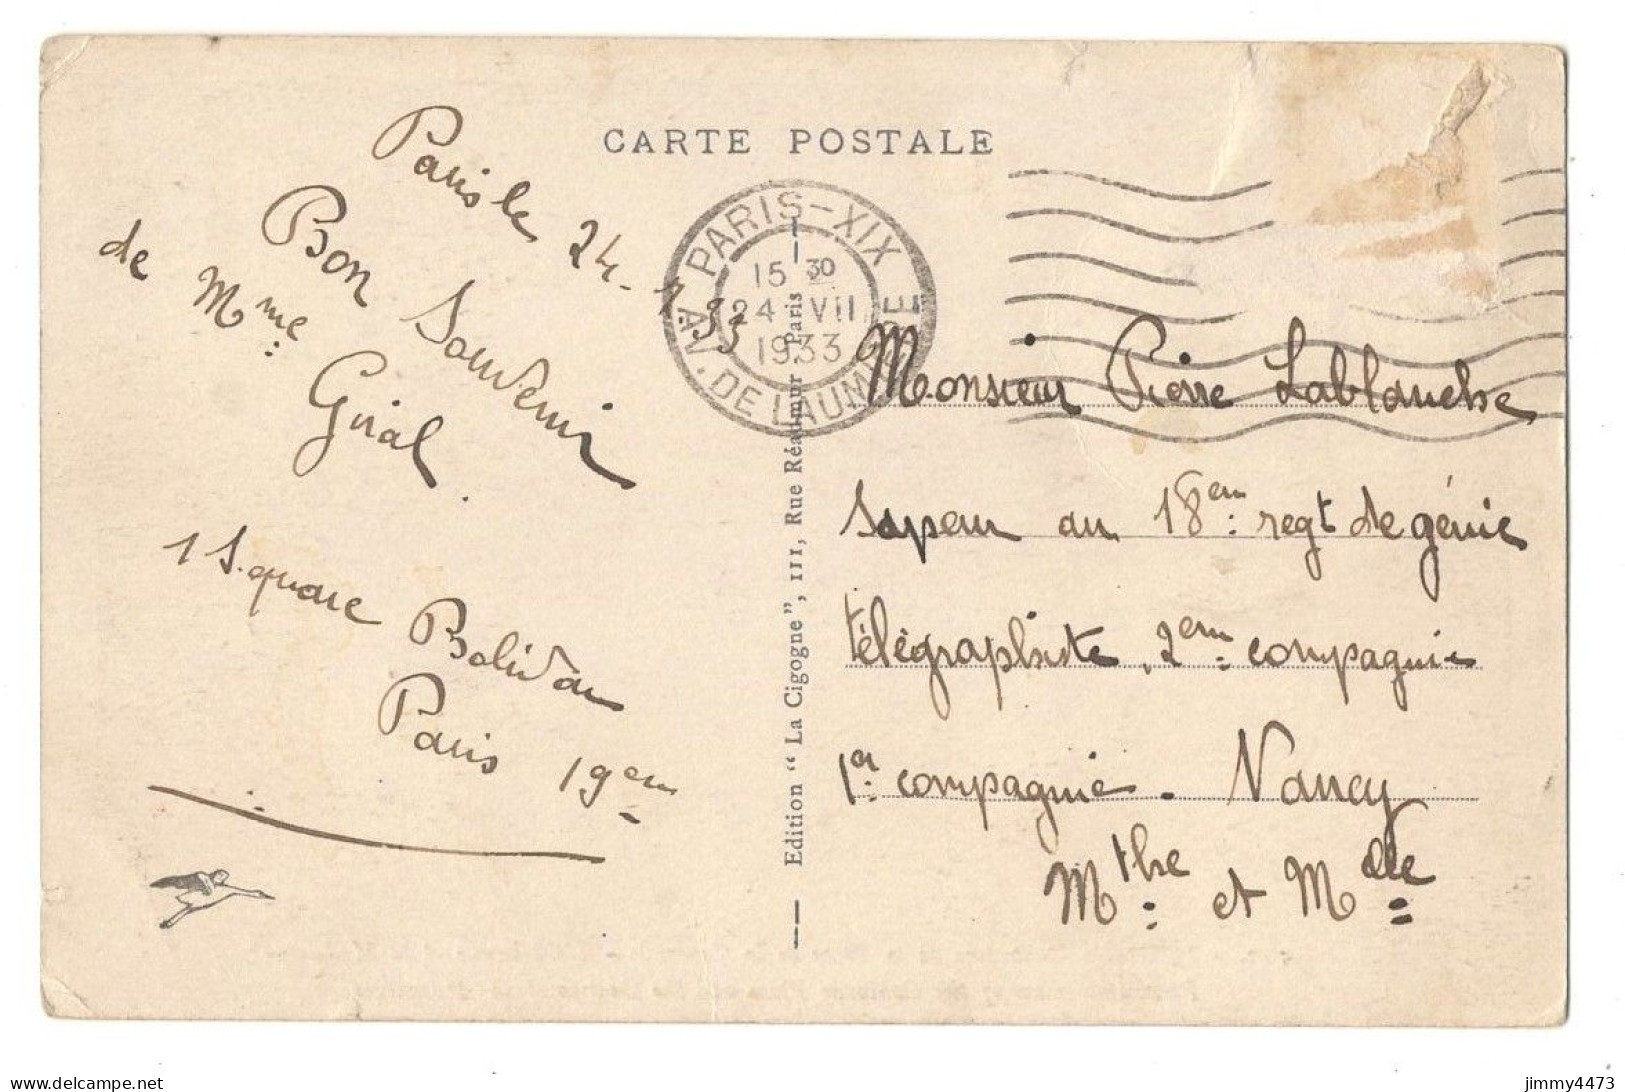 CARTE POSTALE
Paris le 24-7 33
Bon Souvenir
de Mme: Giral.
1 Square Bolivar
Paris 19em
PARIS-XIX
15 30
24 VII
1933
AV. DE LAUMIERE
Edition "La Cigogne", 111, Rue Réaumur Paris
Monsieur Pierre Lablanche
Sapeur au 18em: regt de génie
télégraphiste, 2em: compagnie
1er: compagnie. Nancy
Mthe: et Mdlle
delcampe.net
jimmy4473